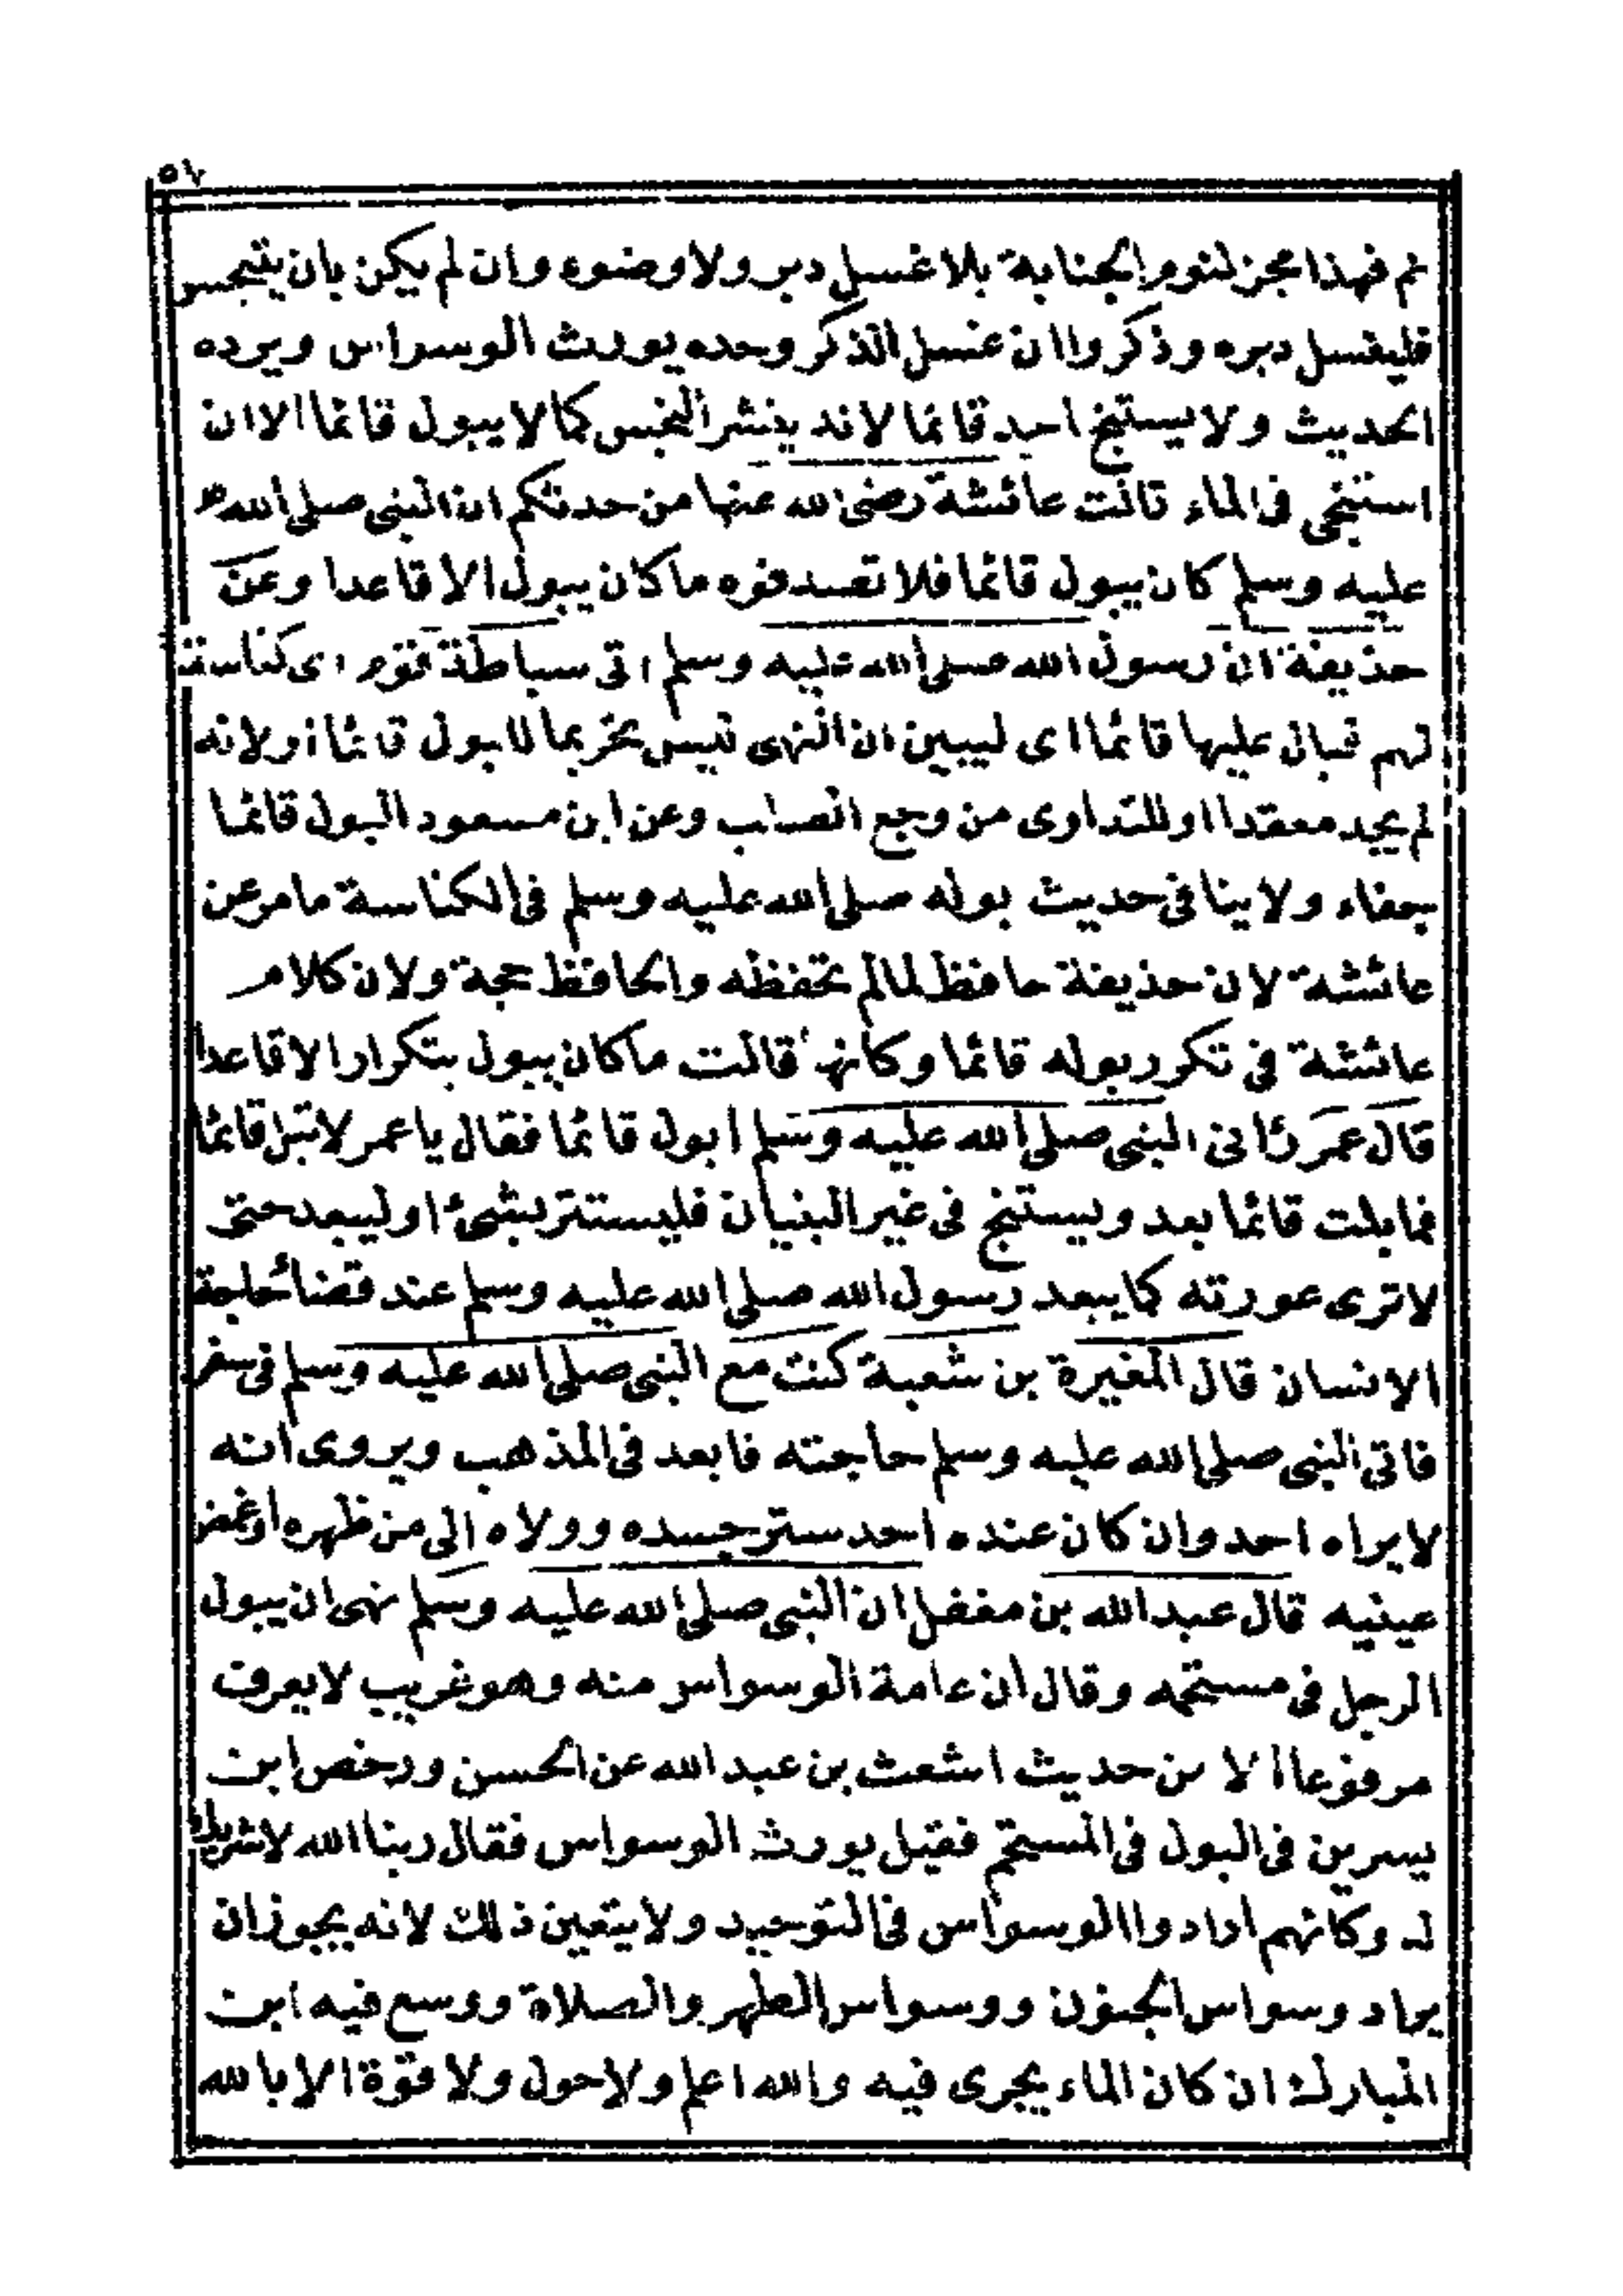 ٥٧
نم فهذا مجز لنوم الجنابة بلا غسل دبر ولا وضوء وان لم يكن بان يتنجس
فليغسل دبره وذكروا ان غسل الذكر وحده يورث الوسواس ويرده
الحديث ولا يستنج احد قائما لانه ينشر النجس كما لا يبول قائما الا ان
استنجى فى الماء قالت عائشة رضى الله عنها من حدثكم ان النبى صلى الله
عليه وسلم كان يبول قائما فلا تصدقوه ما كان يبول الا قاعدا وعن
حذيفة ان رسول الله صلى الله عليه وسلم اتى سباطة قوم اى كناسة
لهم فبال عليها قائما اى ليبين ان النهى ليس تحريما للبول قائما او لانه
لم يجد مقعدا او للتداوى من وجع الصلب وعن ابن مسعود البول قائما
جفاء ولا ينافى حديث بوله صلى الله عليه وسلم فى الكناسة ما مر عن
عائشة لان حذيفة حافظ لما لم تحفظه والحافظ حجة ولان كلام
عائشة فى تكرر بوله قائما وكأنها قالت ما كان يبول بتكرار الا قاعدا
قال عمر رآنى النبى صلى الله عليه وسلم ابول قائما فقال يا عمر لا تبل قائما
فما بلت قائما بعد ويستنج فى غير البنيان فليستتر بشئ او ليبعد حتى
لا ترى عورته كما يبعد رسول الله صلى الله عليه وسلم عند قضاء حاجة
الانسان قال المغيرة بن شعبة كنت مع النبى صلى الله عليه وسلم فى سفر
فاتى النبى صلى الله عليه وسلم حاجته فابعد فى المذهب ويروى انه
لا يراه احد وان كان عنده احد ستر جسده وولاه الى من ظهره او غمض
عينيه قال عبد الله بن مغفل ان النبى صلى الله عليه وسلم نهى ان يبول
الرجل فى مستحمه وقال ان عامة الوسواس منه وهو غريب لا يعرف
مرفوعا الا من حديث اشعث بن عبد الله عن الحسن ورخص ابن
سيرين فى البول فى المستحم فقيل يورث الوسواس فقال ربنا الله لا شريك
له وكانهم ارادوا الوسواس فى التوحيد ولا يتعين ذلك لانه يجوز ان
يراد وسواس الجنون ووسواس الطهر والصلاة ووسع فيه ابن
المبارك ان كان الماء يجرى فيه والله اعلم ولا حول ولا قوة الا بالله